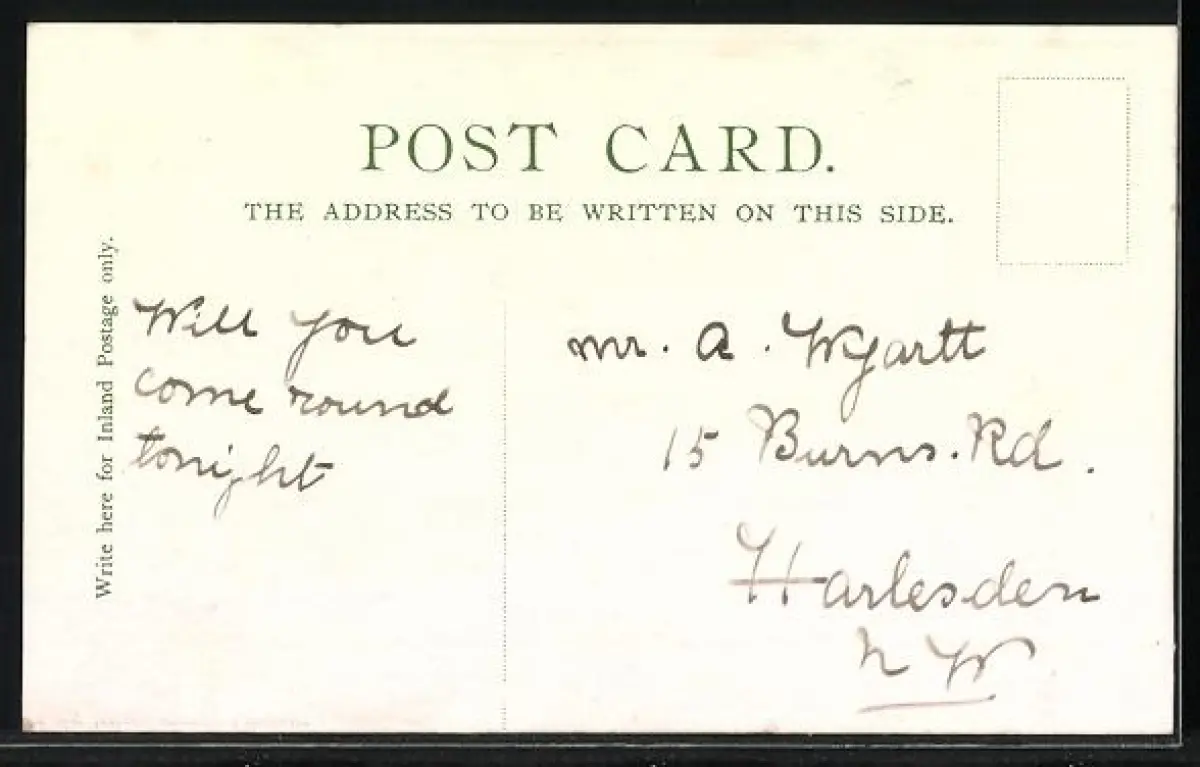 POST CARD.
THE ADDRESS TO BE WRITTEN ON THIS SIDE.
Write here for Inland Postage only.
Will you
come round
tonight
mr. A. Wyartt
15 Burns. Rd.
Harlesden
N W